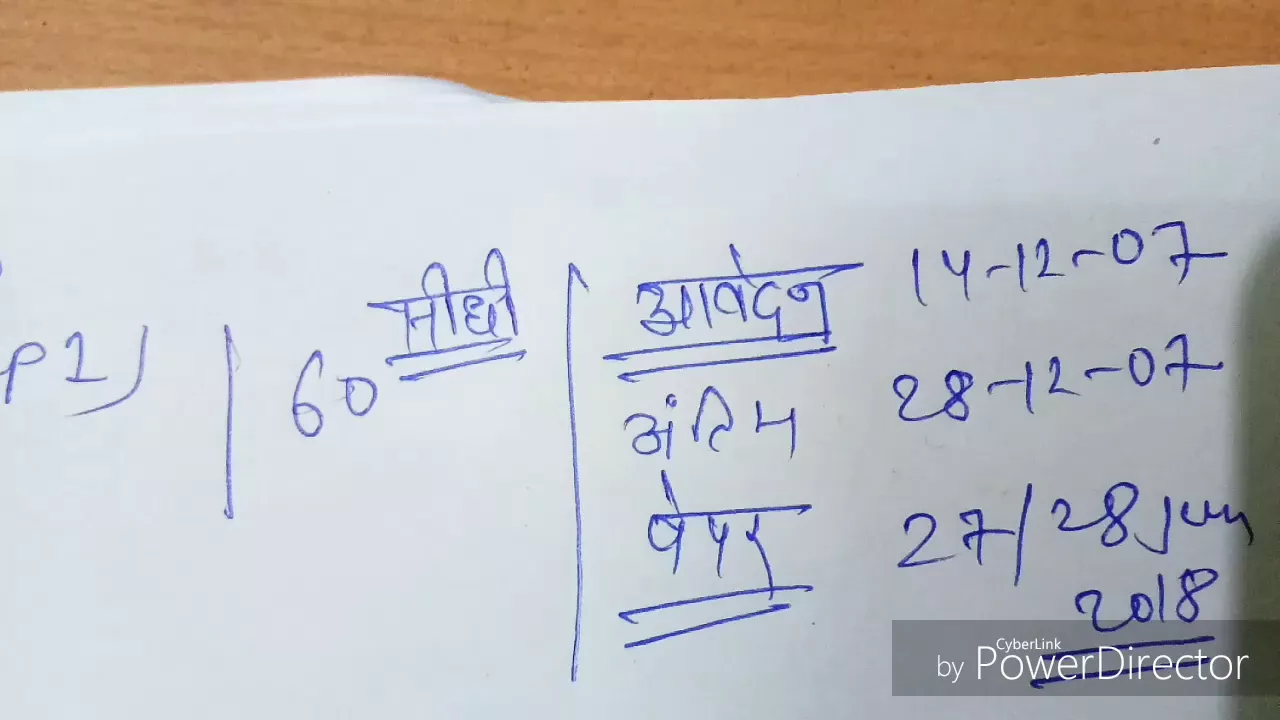 सीधी
60
आवेदन 14-12-07
अंतिम 28-12-07
पेपर 27/28 Jun
2018
by CyberLink PowerDirector